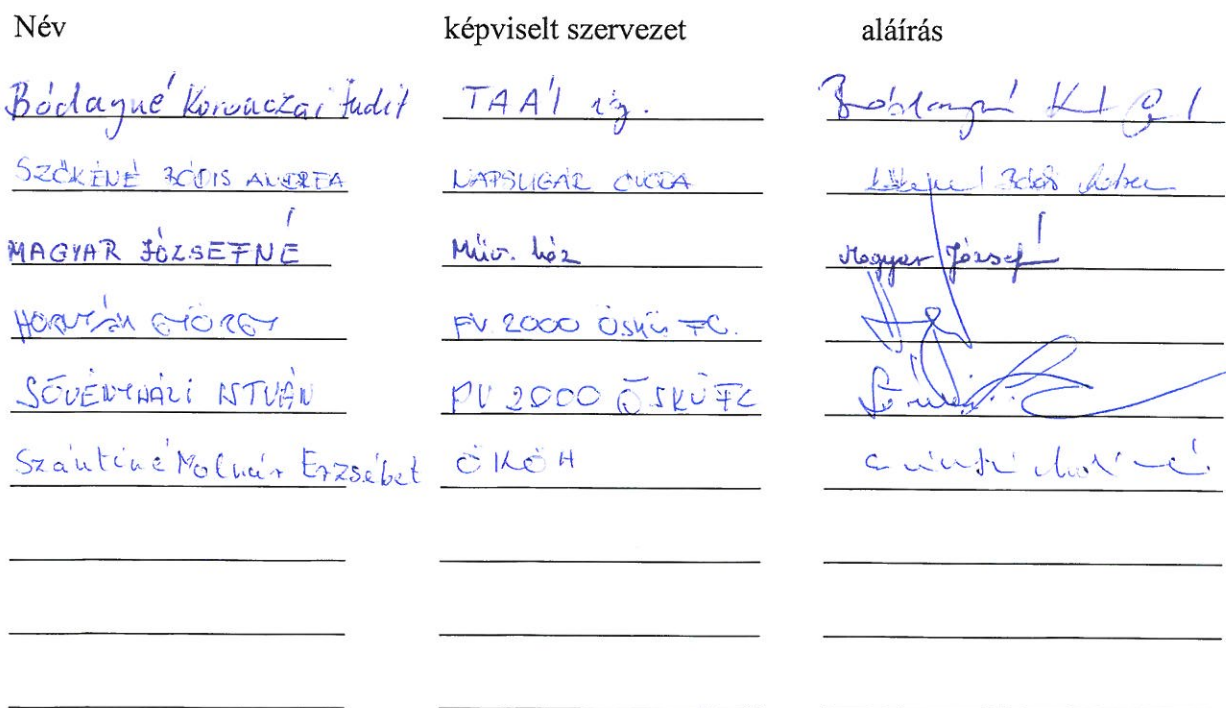 Név képviselt szervezet aláírás
Bódayné Korvaczai Judit TAÁI ig.
SZŐKÉNÉ BÓDIS ANDREA NAPSUGÁR ÓVODA
MAGYAR JÓZSEFNÉ Műv. ház Magyar Józsefné
HORVÁTH GYÖRGY PV. 2000 ÖSKÜ FC.
SÖVÉNYHÁZI ISTVÁN PV 2000 ÖSKÜ FC
Szántiné Molnár Erzsébet ÖKÖH